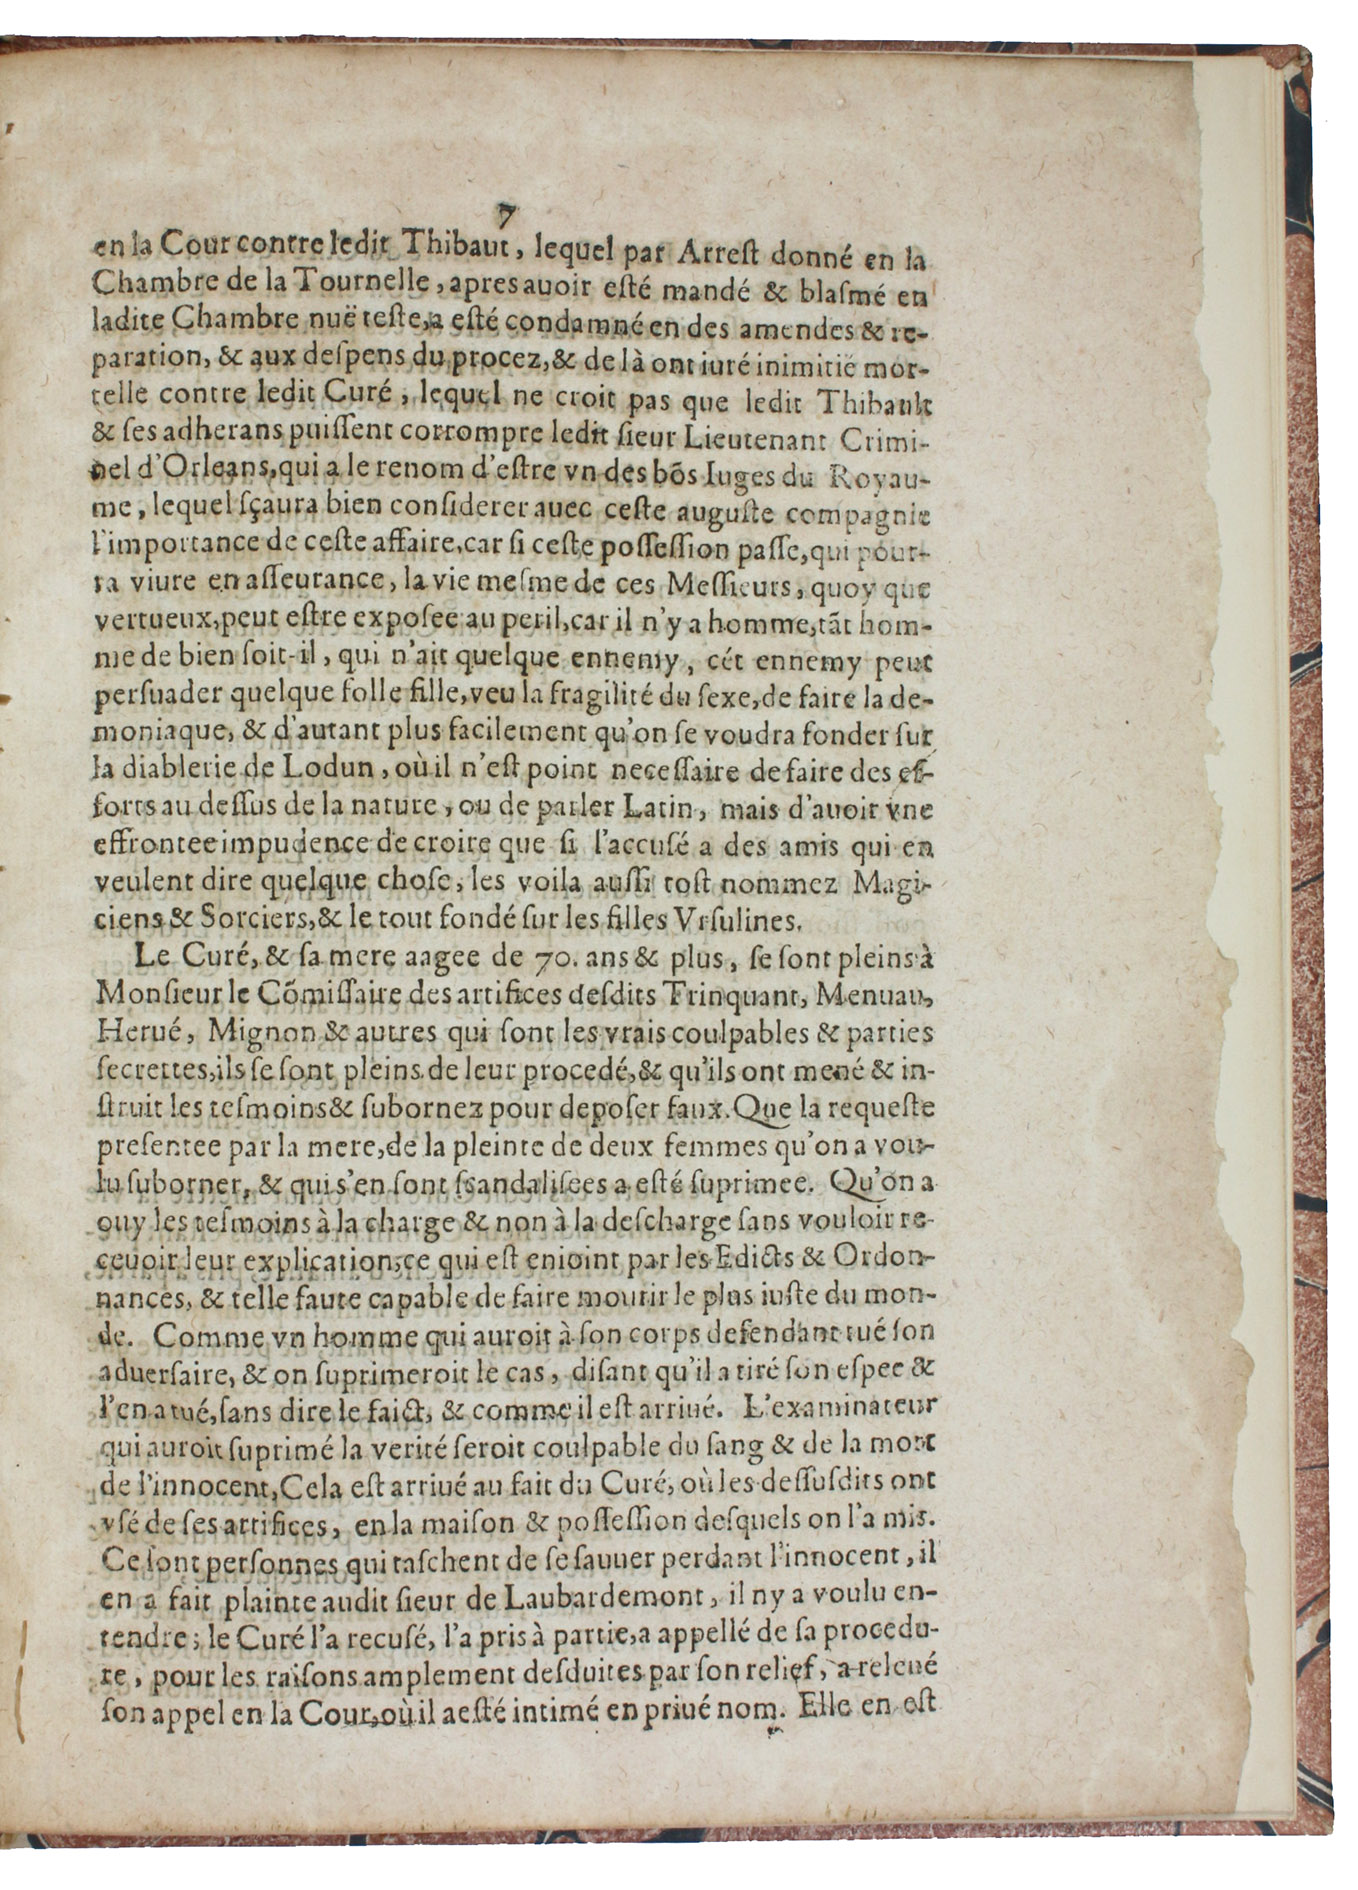 7
en la Cour contre ledit Thibaut, lequel par Arreſt donné en la
Chambre de la Tournelle, apres auoir eſté mandé & blaſmé en
ladite Chambre nuë teſte, a eſté condamné en des amendes & re-
paration, & aux deſpens du procez, & de là ont iuré inimitié mor-
telle contre ledit Curé, lequel ne croit pas que ledit Thibault
& ſes adherans puiſſent corrompre ledit ſieur Lieutenant Crimi-
nel d'Orleans, qui a le renom d'eſtre vn des bõs Iuges du Royau-
me, lequel ſçaura bien conſiderer auec ceſte auguſte compagnie
l'importance de ceſte affaire, car ſi ceſte poſſeſſion paſſe, qui pour-
ra viure en aſſeurance, la vie meſme de ces Meſſieurs, quoy que
vertueux, peut eſtre expoſee au peril, car il n'y a homme, tãt hom-
me de bien ſoit-il, qui n'ait quelque ennemy, cét ennemy peut
perſuader quelque folle fille, veu la fragilité du ſexe, de faire la de-
moniaque, & d'autant plus facilement qu'on ſe voudra fonder ſur
la diablerie de Lodun, où il n'eſt point neceſſaire de faire des ef-
forts au deſſus de la nature, ou de parler Latin, mais d'auoir vne
effrontee impudence de croire que ſi l'accuſé a des amis qui en
veulent dire quelque choſe, les voila auſſi toſt nommez Magi-
ciens & Sorciers, & le tout fondé ſur les filles Vrſulines.
Le Curé, & ſa mere aagee de 70. ans & plus, ſe ſont pleins à
Monſieur le Cõmiſſaire des artifices deſdits Trinquant, Menuau,
Herué, Mignon & autres qui ſont les vrais coulpables & parties
ſecrettes, ils ſe ſont pleins de leur procedé, & qu'ils ont mené & in-
ſtruit les teſmoins & ſubornez pour depoſer faux. Que la requeſte
preſentee par la mere, de la pleinte de deux femmes qu'on a vou-
lu ſuborner, & qui s'en ſont ſcandaliſees a eſté ſuprimee. Qu'on a
ouy les teſmoins à la charge & non à la deſcharge ſans vouloir re-
ceuoir leur explication, ce qui eſt enioint par les Edicts & Ordon-
nances, & telle faute capable de faire mourir le plus iuſte du mon-
de. Comme vn homme qui auroit à ſon corps defendant tué ſon
aduerſaire, & on ſuprimeroit le cas, diſant qu'il a tiré ſon eſpee &
l'en a tué, ſans dire le faict, & comme il eſt arriué. L'examinateur
qui auroit ſuprimé la verité ſeroit coulpable du ſang & de la mort
de l'innocent, Cela eſt arriué au fait du Curé, où les deſſuſdits ont
vſé de ſes artifices, en la maiſon & poſſeſſion deſquels on l'a mis.
Ce ſont perſonnes qui taſchent de ſe ſauuer perdant l'innocent, il
en a fait plainte audit ſieur de Laubardemont, il ny a voulu en-
tendre; le Curé l'a recuſé, l'a pris à partie, a appellé de ſa procedu-
re, pour les raiſons amplement deſduites par ſon relief, a releué
ſon appel en la Cour, où il a eſté intimé en priué nom. Elle en eſt